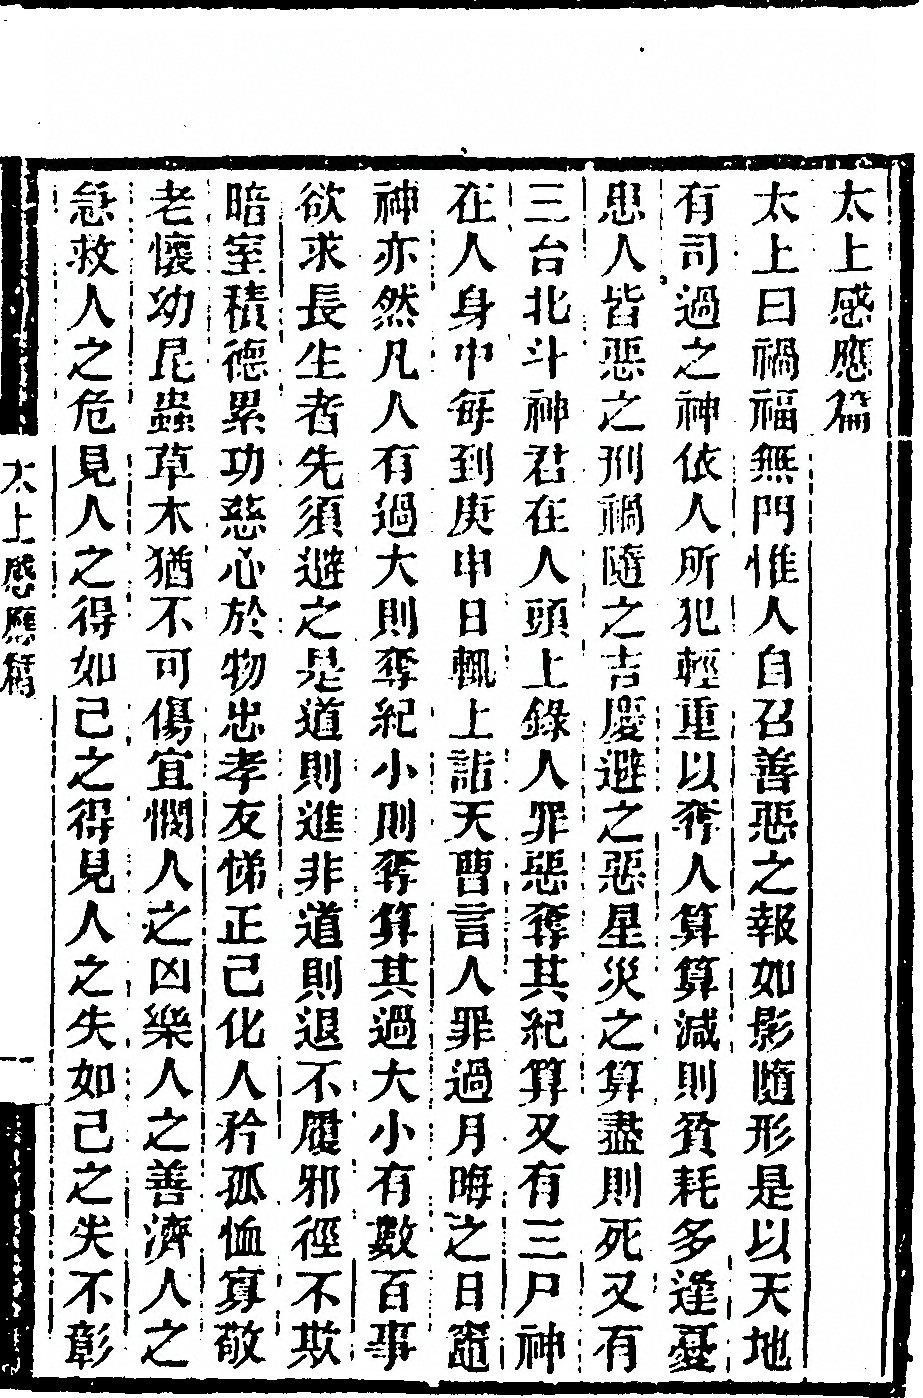 太上感應篇
太上曰禍福無門惟人自召善惡之報如影隨形是以天地
有司過之神依人所犯輕重以奪人算算減則貧耗多逢憂
患人皆惡之刑禍隨之吉慶避之惡星災之算盡則死又有
三台北斗神君在人頭上錄人罪惡奪其紀算又有三尸神
在人身中每到庚申日輒上詣天曹言人罪過月晦之日竈
神亦然凡人有過大則奪紀小則奪算其過大小有數百事
欲求長生者先須避之是道則進非道則退不履邪徑不欺
暗室積德累功慈心於物忠孝友悌正己化人矜孤恤寡敬
老懷幼昆蟲草木猶不可傷宜憫人之凶樂人之善濟人之
急救人之危見人之得如己之得見人之失如己之失不彰
太上感應篇
一